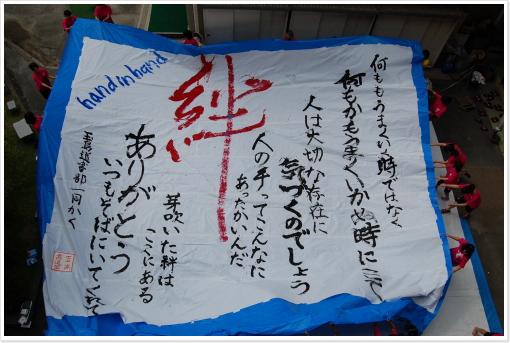 何もかもうまくいく時ではなく
何もかもうまくいかぬ時にこそ
人は大切な存在に
気づくのでしょう
絆
hand in hand
人の手ってこんなに
あったかいんだ
芽吹いた絆は
ここにある
ありがとう
いつもそばにいてくれて
書道部一同かく